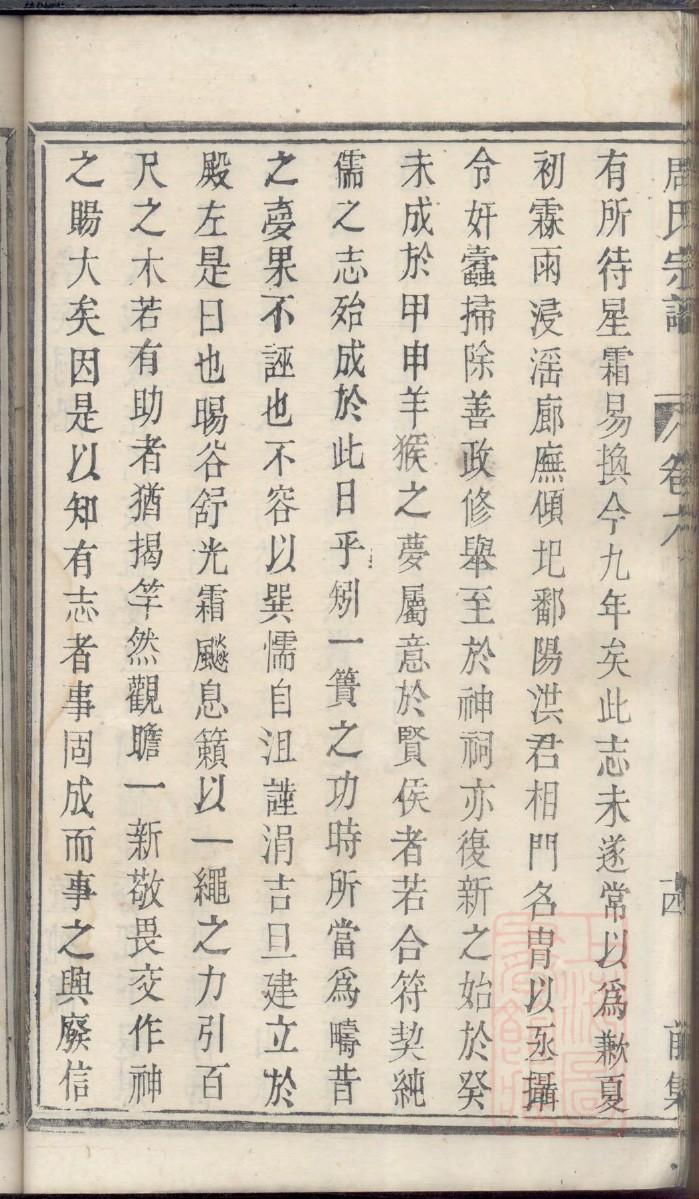 周氏宗譜 卷六 十四 前集
有所待星霜易換今九年矣此志未遂常以爲歉夏
初霖雨浸滛廊廡傾圯鄱陽洪君相門名胄以丞攝
令奸蠹掃除善政修舉至於神祠亦復新之始於癸
未成於甲申羊猴之夢屬意於賢侯者若合符契純
儒之志殆成於此日乎矧一簣之功時所當爲疇昔
之夢果不誣也不容以巽懦自沮謹涓吉旦建立於
殿左是日也暘谷舒光霜飈息籟以一繩之力引百
尺之木若有助者猶揭竿然觀瞻一新敬畏交作神
之賜大矣因是以知有志者事固成而事之興廢信